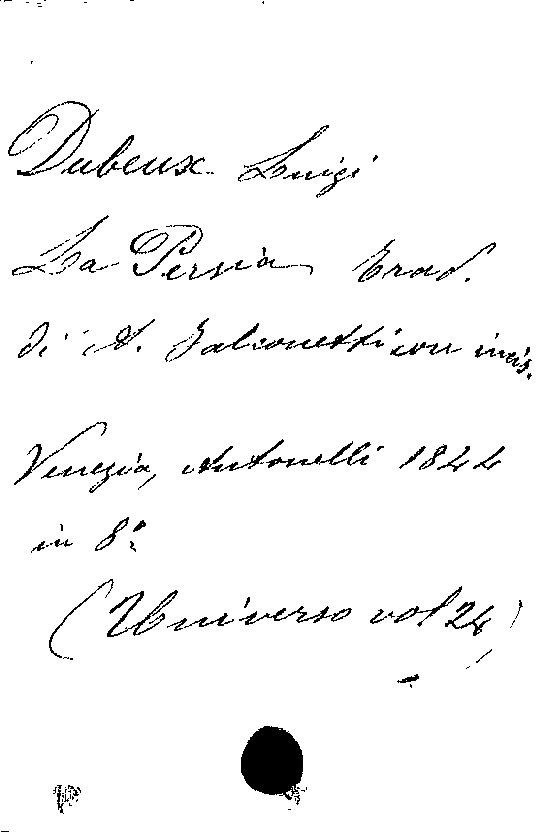 Dubeux Luigi
La Persia Trad.
di A. Falconetti con incis.
Venezia, Antonelli 1844
in 8°
(Universo vol 24)